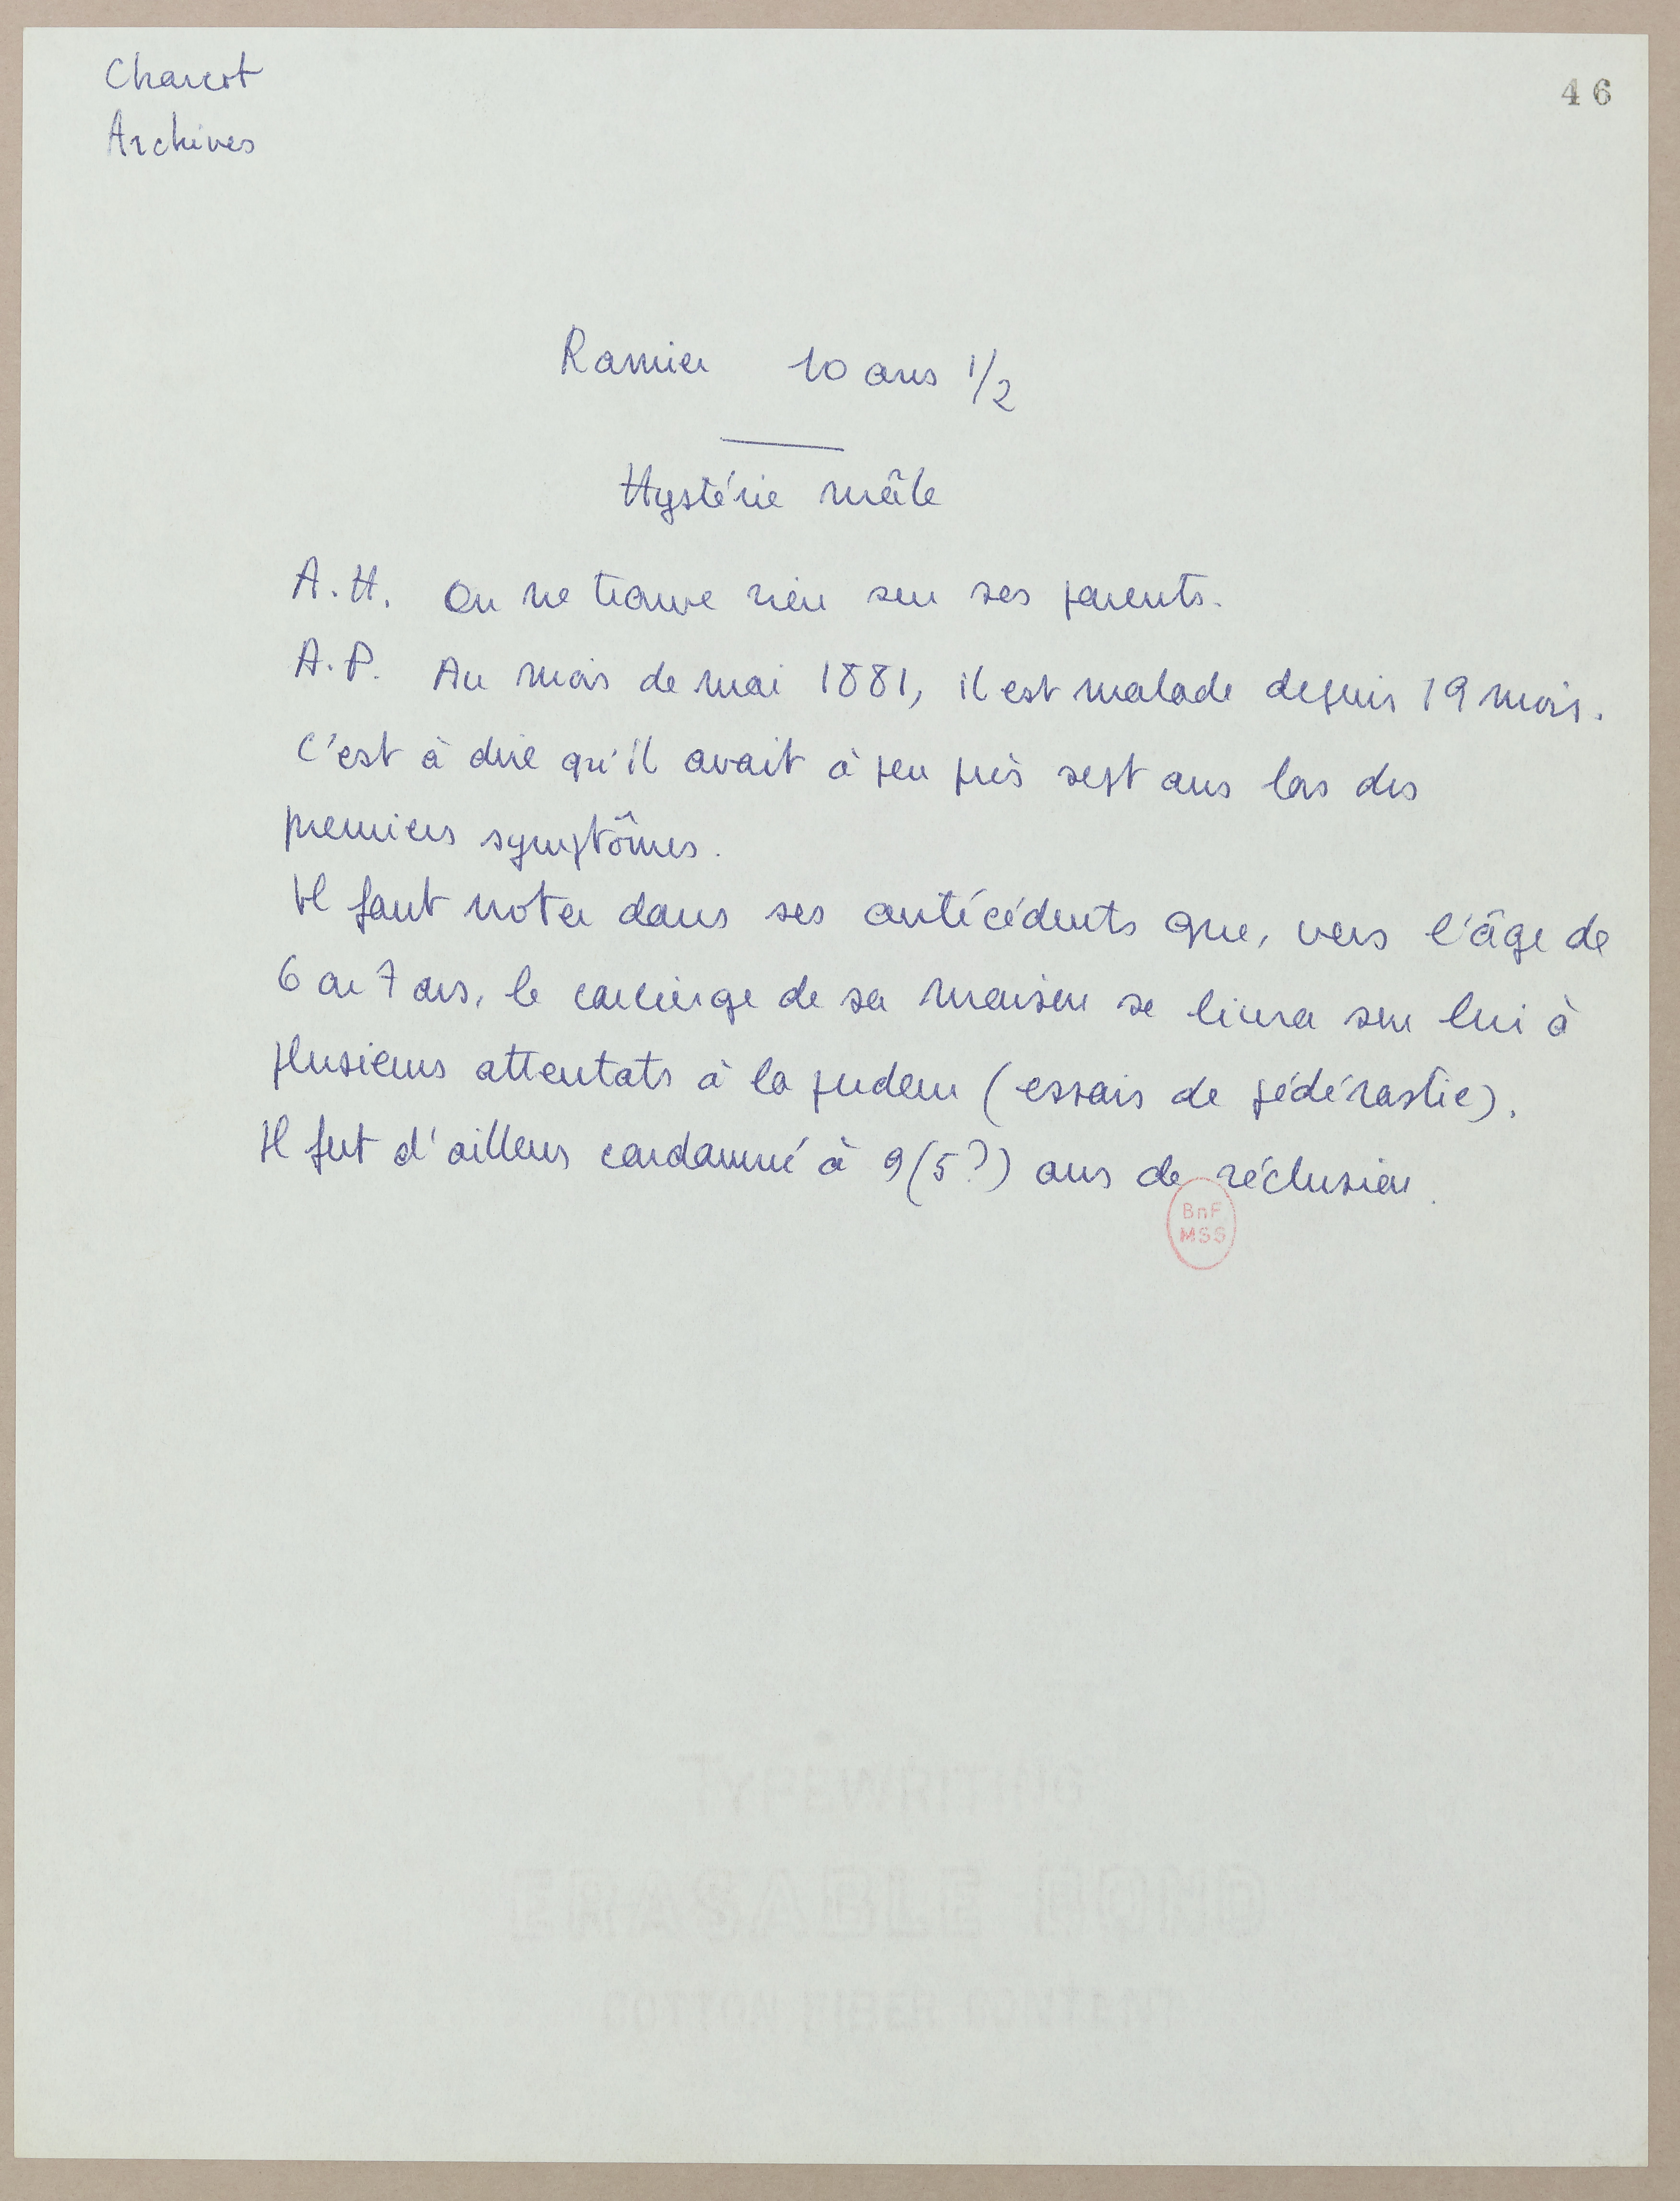 Charcot
46
Archives
Ramier 10 ans 1/2
Hystérie mâle
A.H. On ne trouve rien sur ses parents.
A.P. Au mois de mai 1881, il est malade depuis 19 mois.
C'est à dire qu'il avait à peu près sept ans lors des
premiers symptômes.
Il faut noter dans ses antécédents que, vers l'âge de
6 ou 7 ans, le concierge de sa maison se livra sur lui à
plusieurs attentats à la pudeur (essais de pédérastie).
Il fut d'ailleurs condamné à 9 (5?) ans de réclusion.
BnF
MSS
TYPEWRITING
ERASABLE BOND
COTTON FIBER CONTENT